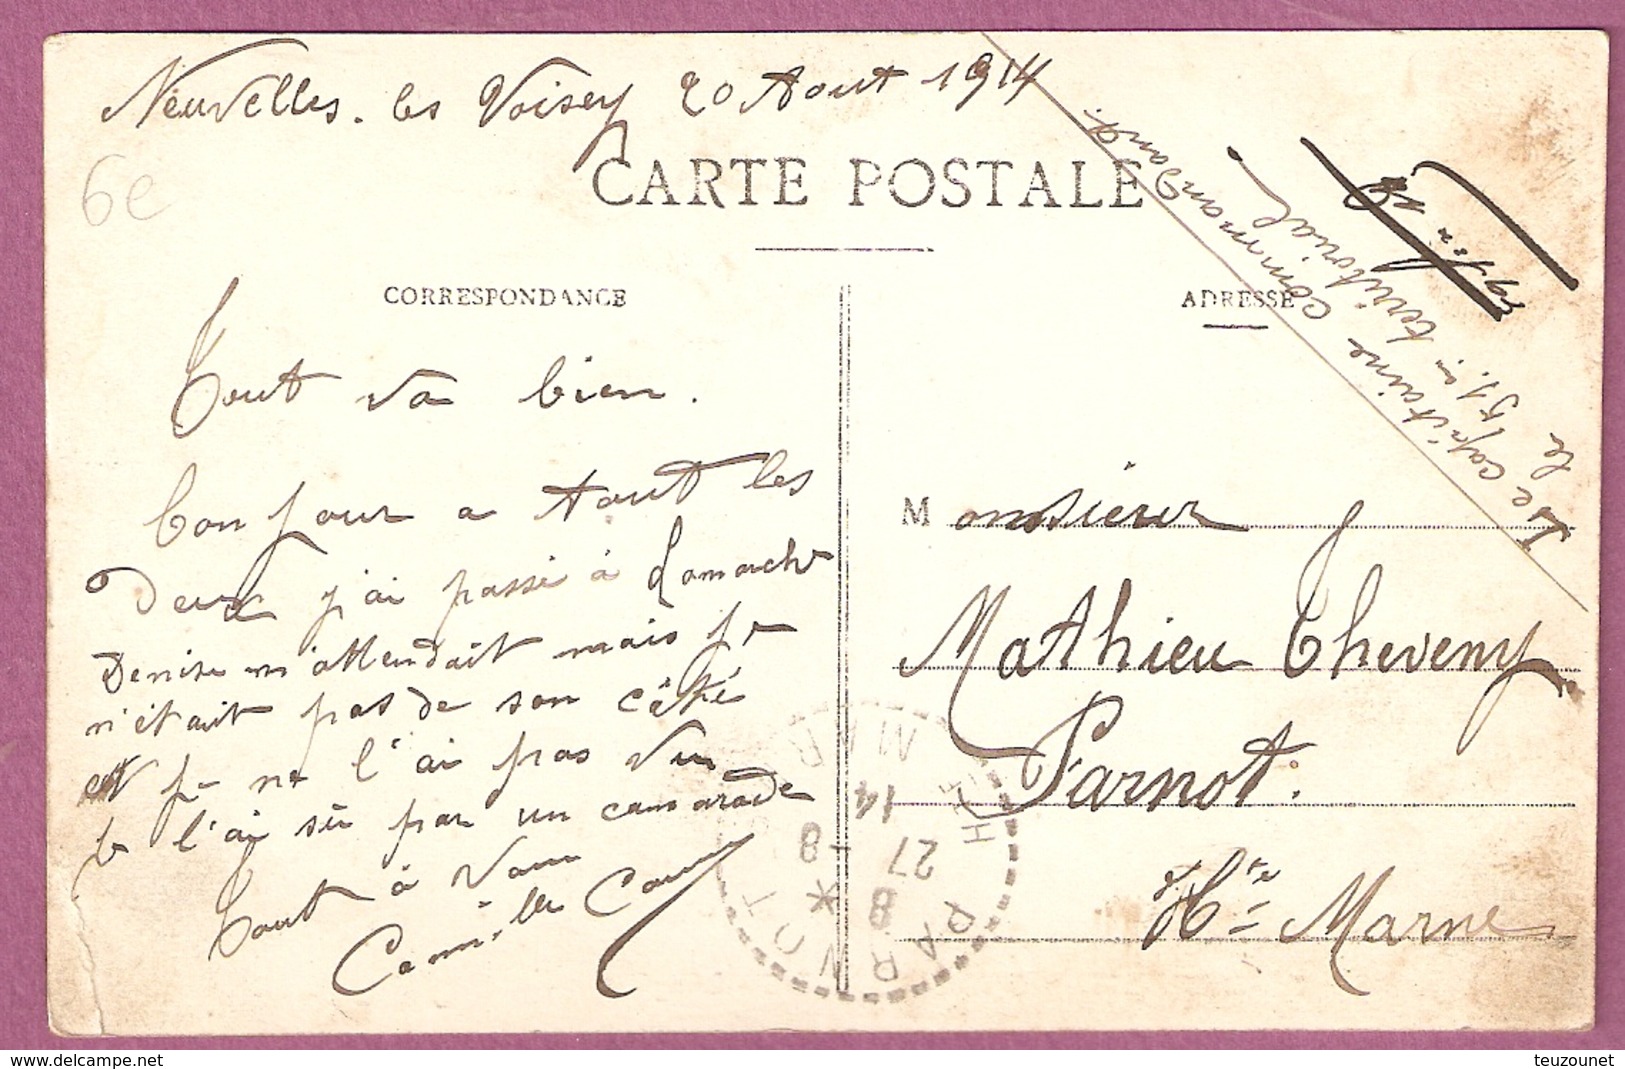 Neuvelles. les Voisey 20 Aout 1914
6e
CARTE POSTALE
CORRESPONDANCE
ADRESSE
Le capitaine commandant
le 51. territorial
Tout va bien.
bonjour a tout les
Deux j'ai passé à Lamarche
Denise m'attendait mais je
n'était pas de son côté
et je ne l'ai pas vu
je l'ai sû par un camarade
Tout à vous
Camille
Monsieur
Mathieu Theveny
Parnot.
Hte Marne
PARNOT
HTE MAR
8 *
27 -8
14
www.delcampe.net
teuzounet